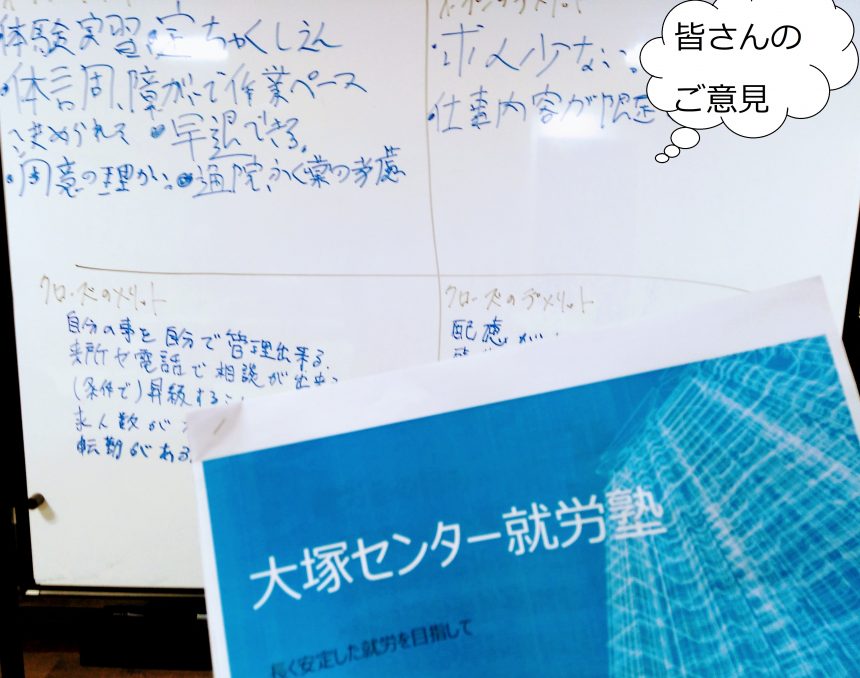 体験実習、定ちゃくしえん
・体調、障がいで作業ペース
決められる ・早退できる。
・周囲の理かい。・通院、ふく薬の考慮
・求人少ない。
・仕事内容が限定
皆さんの
ご意見
クローズのメリット
自分の事を自分で管理出来る。
来所や電話で相談が出来
(条件で)昇級する
求人数が
転勤がある。
クローズのデメリット
配慮が
大塚センター就労塾
長く安定した就労を目指して